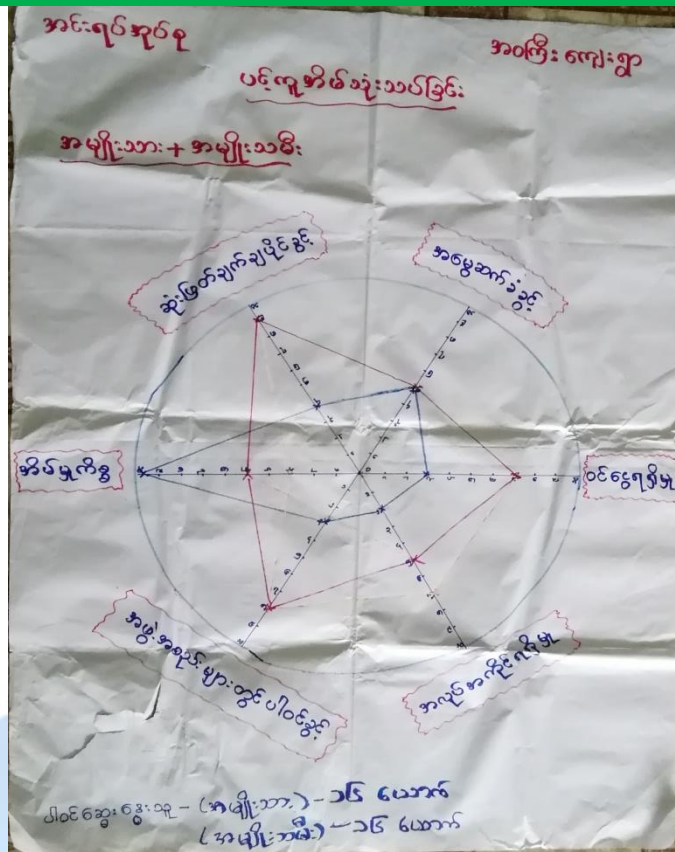 အင်းရပ်အုပ်စု
အဝကြီး ကျေးရွာ
ပင့်ကူအိမ်သုံးသပ်ခြင်း
အမျိုးသား + အမျိုးသမီး
ဆုံးဖြတ်ချက်ချပိုင်ခွင့်
အမွေဆက်ခံခွင့်
အိမ်မှုကိစ္စ
ဝင်ငွေရရှိမှု
အဖွဲ့အစည်းများတွင် ပါဝင်ခွင့်
အလုပ်အကိုင်ရရှိမှု
ပါဝင်ဆွေးနွေးသူ - (အမျိုးသား) - ၁၆ ယောက်
(အမျိုးသမီး) - ၁၆ ယောက်